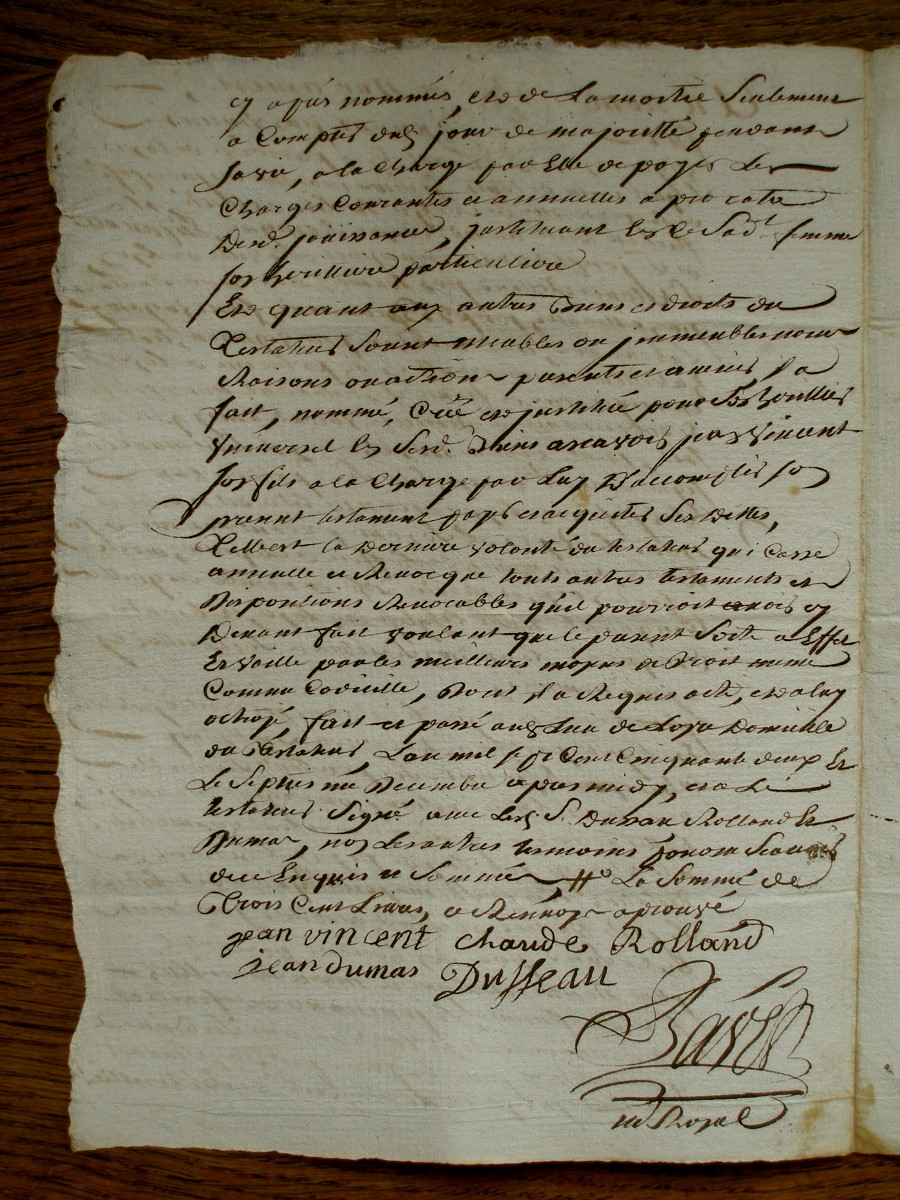 cy apres nommés, et de la moitié seulement
a compter du jour de majorité pendant
sa vie, a la charge par elle de payer les
charges courantes et annuelles a pro rata
de sad. jouissance, instituant la sad.t femme
son heritiere particuliere
Et quant aux autres biens et droits du
testateur soient meubles ou immeubles noms
raisons ou actions presents et avenir il a
fait, nommé, créé et institué pour son heritier
universel sesd. biens a scavoir jean vincent
son fils a la charge par luy d'accomplir son
present testament payer et acquiter ses dettes,
telle est la derniere volonté du testateur qui casse
annulle et revocque touts autres testaments et
dispositions revocables qu'il pourroit avoir cy
devant fait voulant que le present sorte a effet
et vaille par les meilleurs moyens de droit meme
comme codicille, dont il a requis acte, et a luy
octroyé, fait et passé aud. lieu de domicille
du testateur, l'an mil sept cent cinquante deux et
le septieme decembre apres midy, et a le
testateur signé avec les s. Dusseau Rolland et
Dumas, non les autres temoins pour ne scavoir
de ce enquis et sommés, # la somme de
trois cent livres, et renvoye aprouvé
jean vincent chaude Rolland
jean dumas Dusseau
Bayet
no Royal